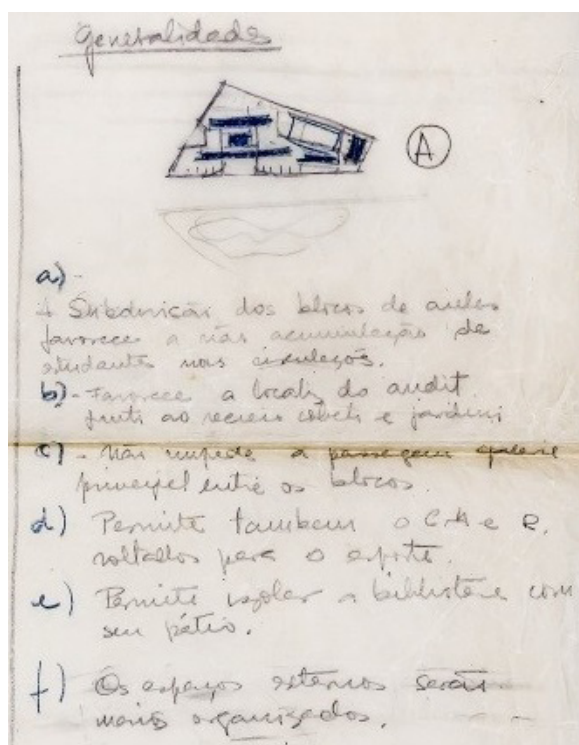 Generalidades
A
a) -
A Subdivisão dos blocos de aulas
favorece a não acumulação de
estudantes nas circulações.
b) - Favorece a localiz do audit
junto ao recreio coberto e jardim
c) - Não impede a passagem
principal entre os blocos.
d) Permite tambem o C.A e R.
voltados para o esporte.
e) Permite isolar a biblioteca com
seu pátio.
f) Os espaços externos serão
mais organizados.